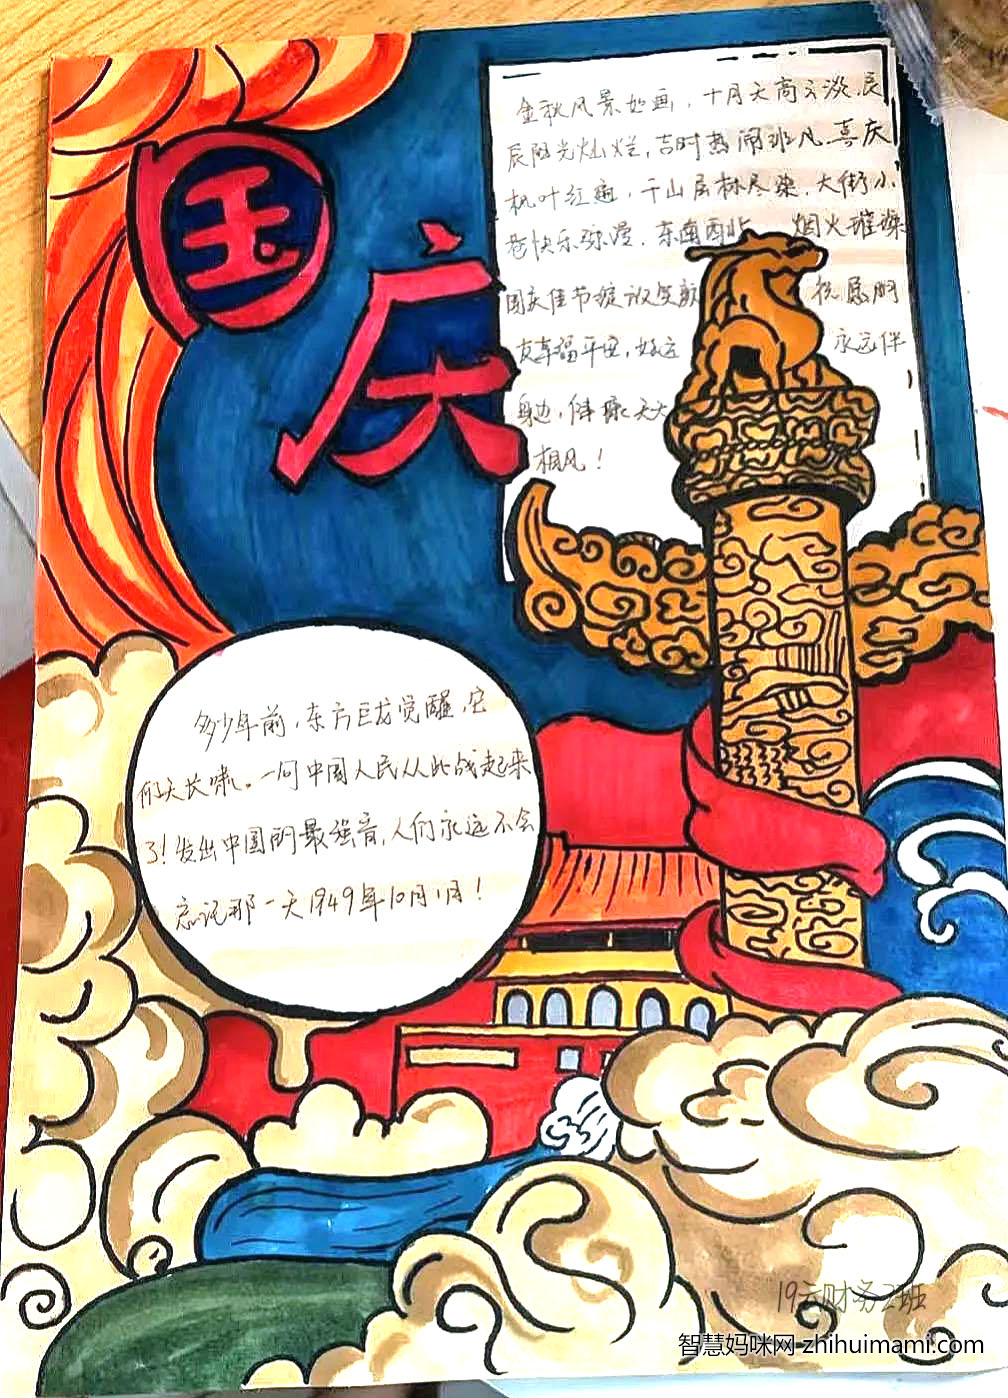 国庆
金秋风景如画,十月天高云淡,辰
辰阳光灿烂,吉时热闹非凡.喜庆
枫叶红遍,千山层林尽染,大街小
巷快乐弥漫.东南西北 烟火璀璨
国庆佳节绽放笑颜 祝愿朋
友幸福平安,好运 永远伴
身边,健康天天
相随!
多少年前,东方巨龙觉醒,它
仰天长啸。一句中国人民从此战起来
了!发出中国的最强音,人们永远不会
忘记那一天1949年10月1日!
19云财务2班
智慧妈咪网 zhihuimami.com